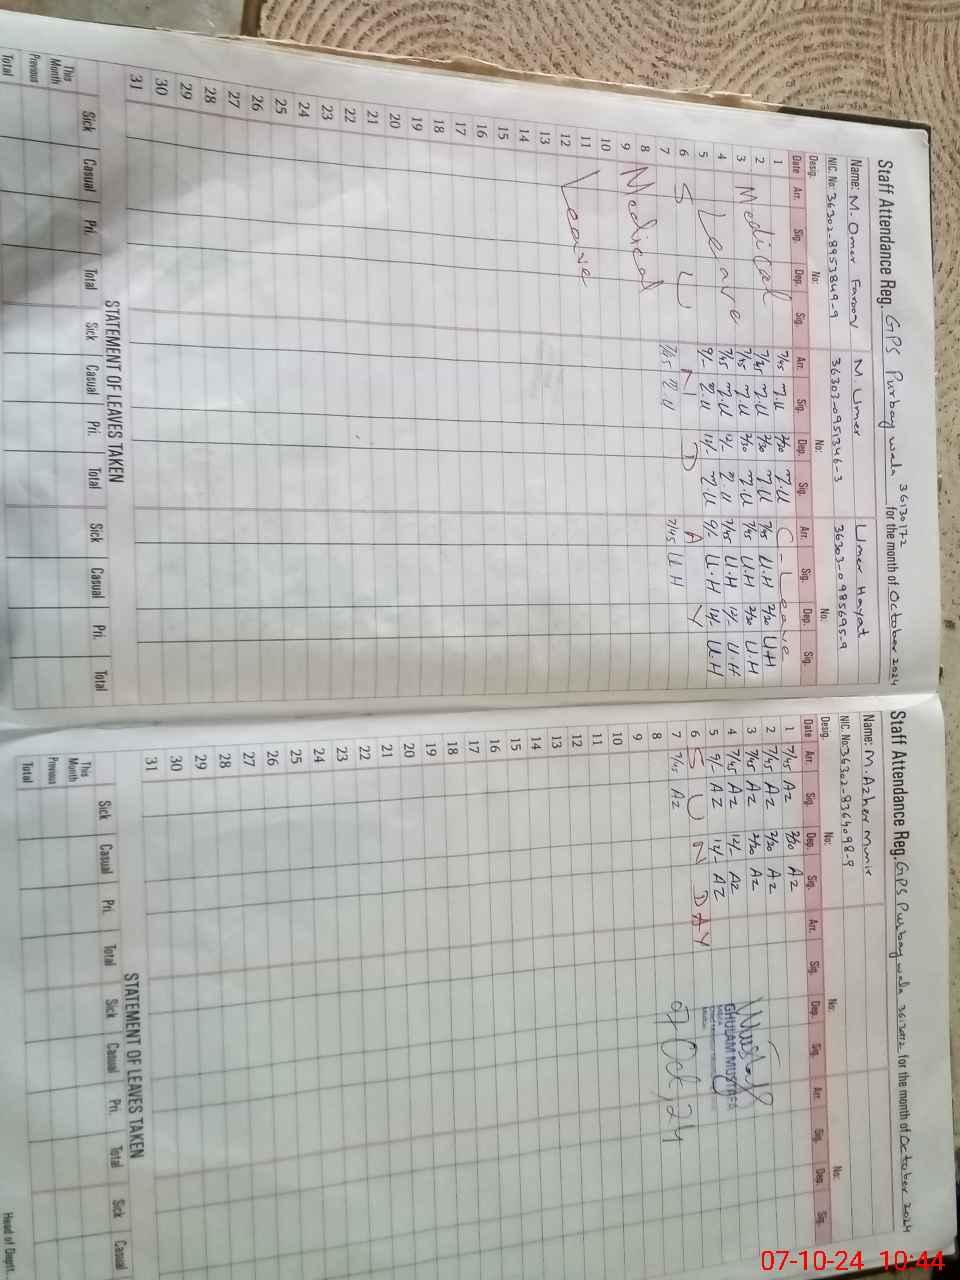 Staff Attendance Reg. GPS Purbay wala 36130172 for the month of October 2024
Name: M. Omer Farooq M. Umer Umer Hayat
NIC. No: 36302-8953849-9 36303-0951346-3 36303-0985695-9
Desig. No: No: No:
Date Arr. Sig. Dep. Sig. Arr. Sig. Dep. Sig. Arr. Sig. Dep. Sig.
1 7/45 M.U 2/30 M.U C-Leave
2 Medical 7/45 M.U 2/30 M.U 7/45 U.H 2/30 U.H
3 7/45 M.U 2/30 M.U 7/45 U.H 2/30 U.H
4 Leave 7/45 M.U 12/- M.U 7/45 U.H 12/- U.H
5 9/- M.U 12/- M.U 9/- U.H 12/- U.H
6 S U N D A Y
7 7/45 M.U 7/45 U.H
8 Medical
9
10
11 Leave
12
13
14
15
16
17
18
19
20
21
22
23
24
25
26
27
28
29
30
31
STATEMENT OF LEAVES TAKEN
Sick Casual Pri. Total Sick Casual Pri. Total Sick Casual Pri. Total
This Month
Previous
Total
Staff Attendance Reg. GPS Purbay wala for the month of October 2024
Name: M. Azher Munir
NIC. No: 36302-8364098-9
Desig. No: No: No:
Date Arr. Sig. Dep. Sig. Arr. Sig. Dep. Sig. Arr. Sig. Dep. Sig.
1 7/45 AZ 2/30 AZ
2 7/45 AZ 2/30 AZ
3 7/45 AZ 2/30 AZ
4 7/45 AZ 12/- AZ
5 9/- AZ 12/- AZ
GHULAM MUSTAFA
6 S U N D A Y
7 7/45 AZ 07 Oct, 24
8
9
10
11
12
13
14
15
16
17
18
19
20
21
22
23
24
25
26
27
28
29
30
31
STATEMENT OF LEAVES TAKEN
Sick Casual Pri. Total Sick Casual Pri. Total Sick Casual
This Month
Previous
Total
Head of Deptt.
07-10-24 10:44